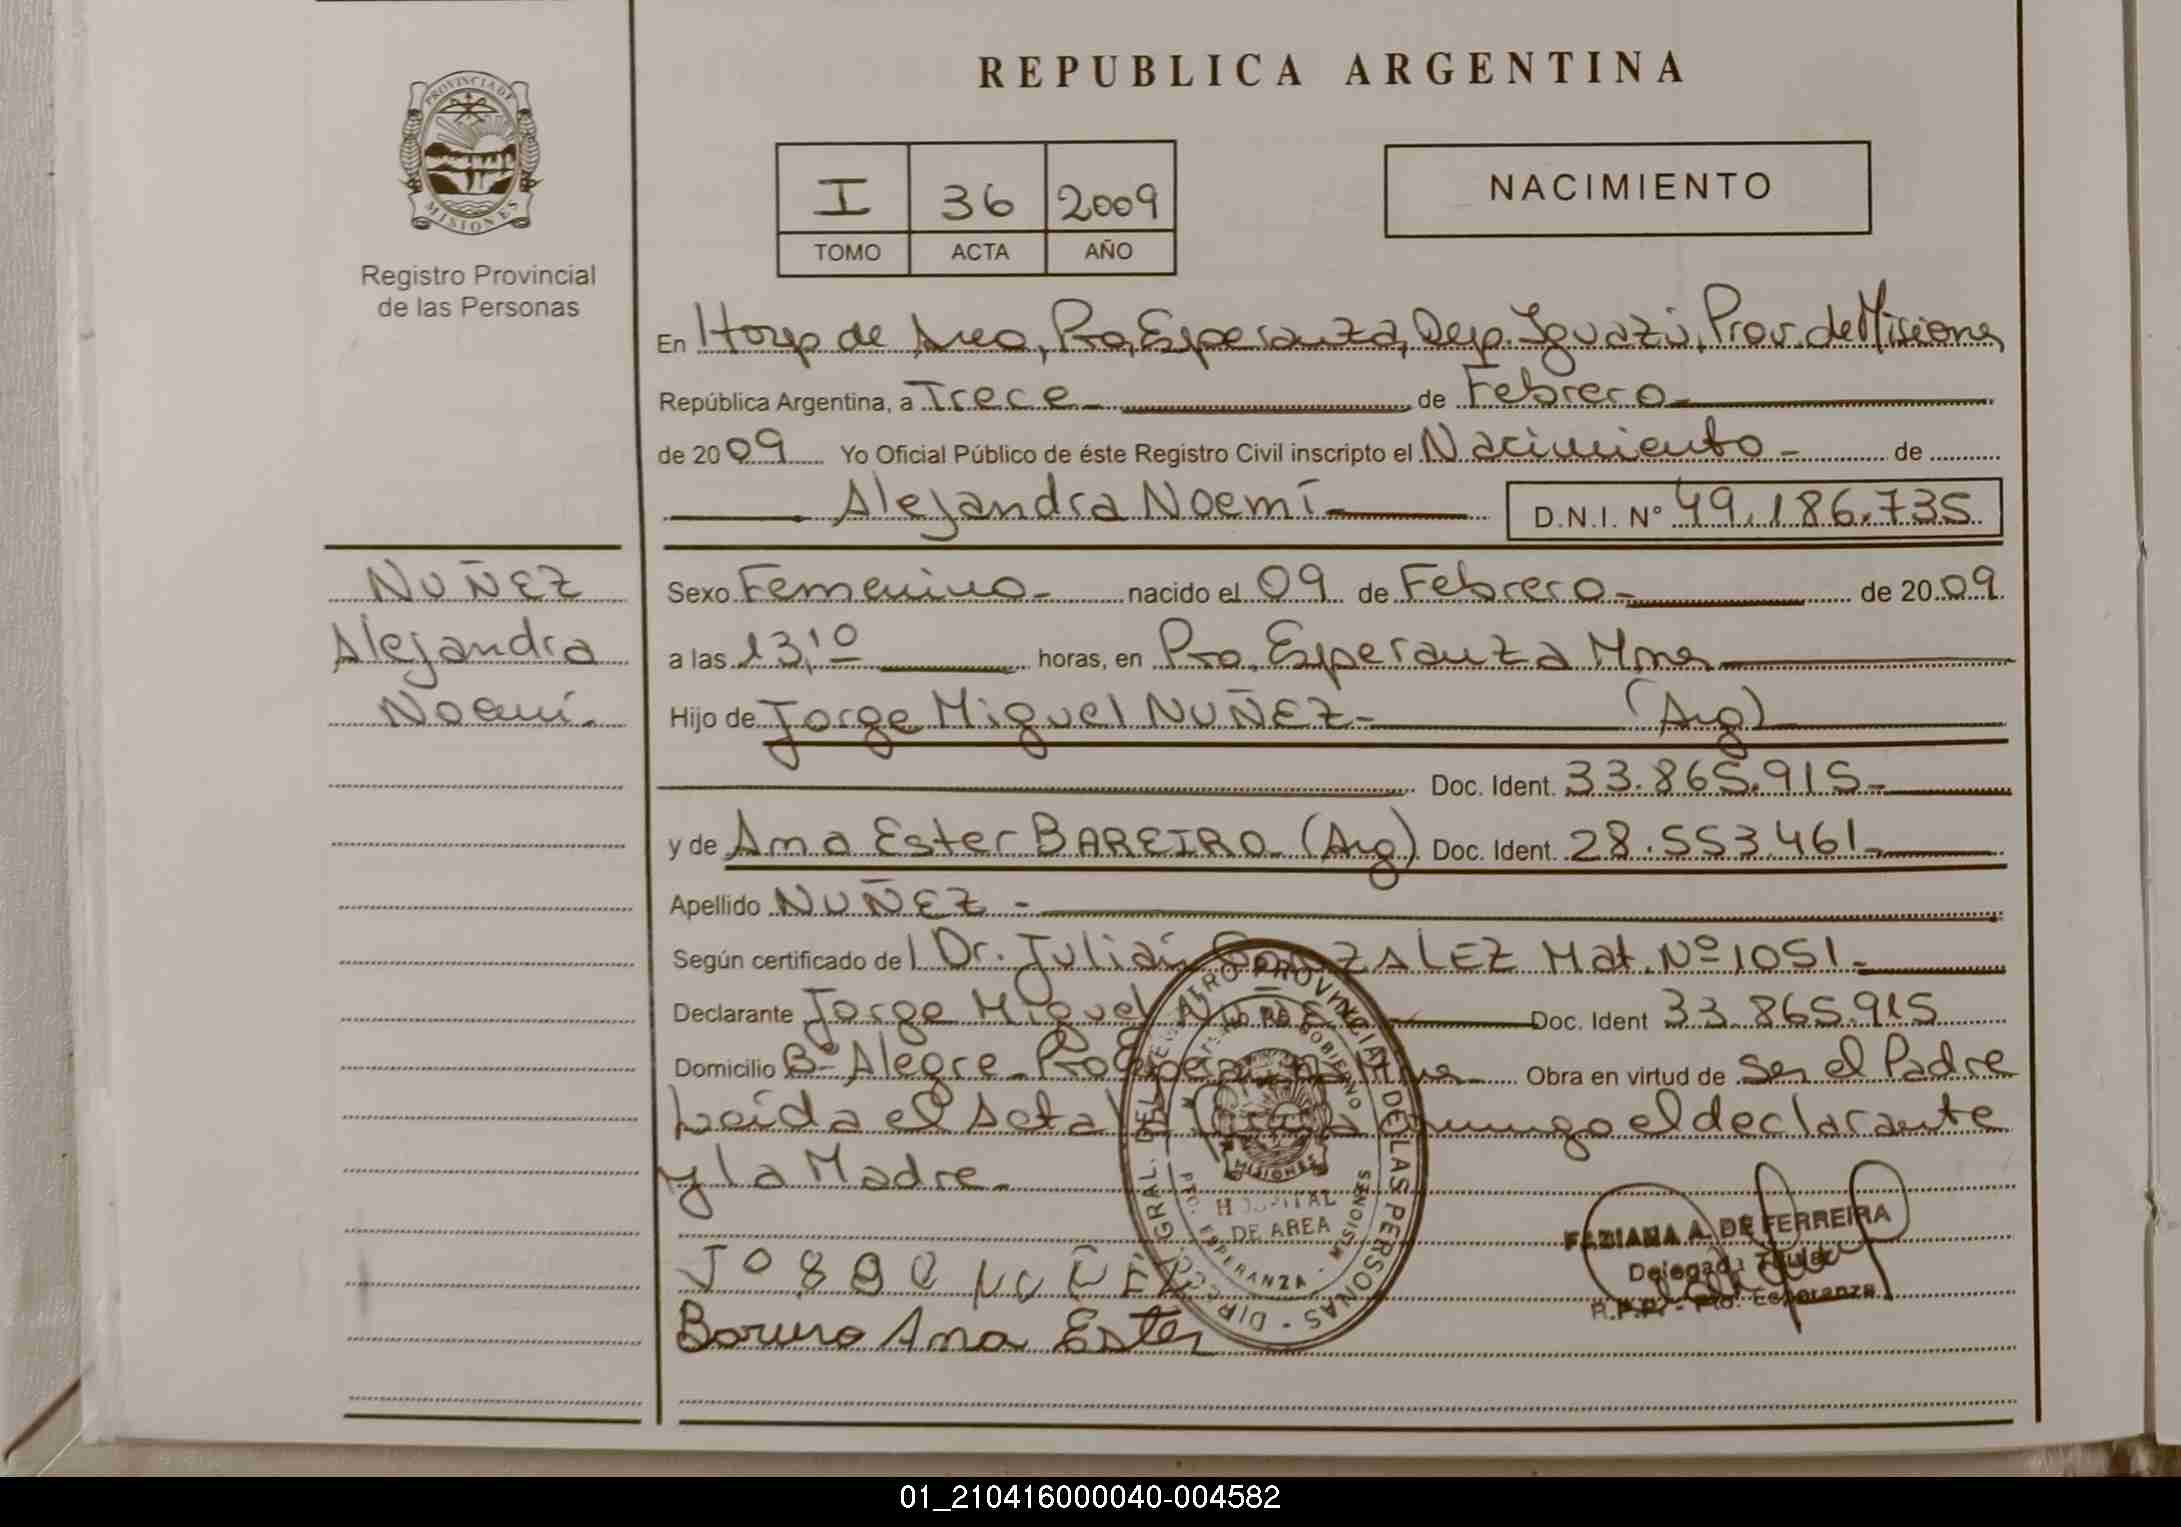 REPUBLICA ARGENTINA
PROVINCIA DE
MISIONES
Registro Provincial
de las Personas
I 36 2009
TOMO ACTA AÑO
NACIMIENTO
En Hosp de Area, Pto, Esperanza, Dep. Iguazú, Prov. de Misiones
República Argentina, a Trece de Febrero
de 2009 Yo Oficial Público de éste Registro Civil inscripto el Nacimiento de
Alejandra Noemí D.N.I. Nº 49.186.735
NUÑEZ
Alejandra
Noemí.
Sexo Femenino nacido el 09 de Febrero de 2009
a las 13,10 horas, en Pto. Esperanza Mnes
Hijo de Jorge Miguel NUÑEZ (Arg)
Doc. Ident. 33.865.915
y de Ana Ester BAREIRO (Arg) Doc. Ident. 28.553.461
Apellido NUÑEZ
Según certificado del Dr. Julián GONZALEZ Mat. Nº 1051
Declarante Jorge Miguel NUÑEZ Doc. Ident 33.865.915
Domicilio Bº Alegre Pto Esperanza Mnes Obra en virtud de Ser el Padre
Leída el Acta la firma conmigo el declarante
y la Madre.
JORGE NUÑEZ
Bareiro Ana Ester
DIRECC. GRAL. DEL REGISTRO PROVINCIAL DE LAS PERSONAS
MISIONES
HOSPITAL
DE AREA
PTO. ESPERANZA - MISIONES
FABIANA A. DE FERREIRA
Delegada Titular
R.P.P. - Pto. Esperanza
01_210416000040-004582